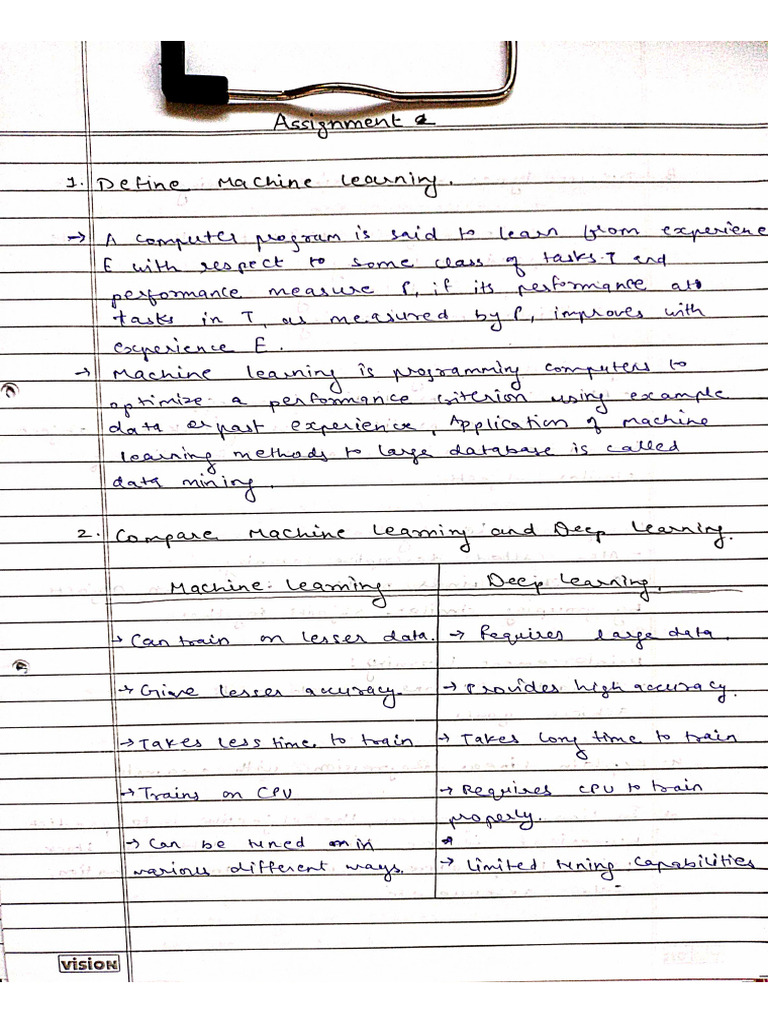 Assignment 2
1. Define Machine Learning.
→ A computer program is said to learn from experience
E with respect to some class of tasks T and
performance measure P, if its performance at
tasks in T, as measured by P, improves with
experience E.
→ Machine learning is programming computers to
optimize a performance criterion using example
data or past experience, Application of machine
learning methods to large database is called
data mining.
2. Compare Machine Learning and Deep Learning.
Machine Learning. Deep Learning.
→ Can train on lesser data. → Requires large data.
→ Give lesser accuracy. → Provides high accuracy.
→ Takes less time to train → Takes long time to train
→ Trains on CPU → Requires CPU to train
properly.
→ Can be tuned in
various different ways. → Limited tuning capabilities
vision